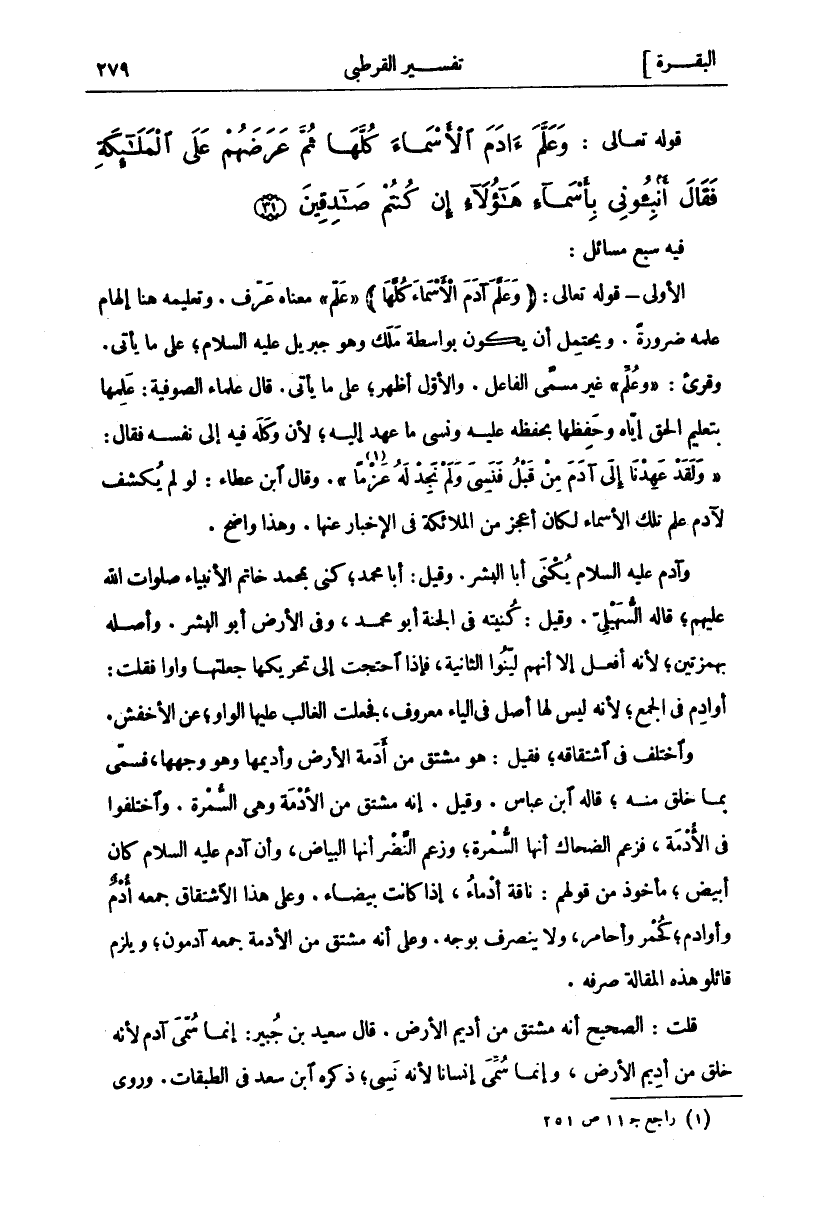 البقرة ] تفسير القرطبى ٢٧٩
قوله تعالى : وَعَلَّمَ ءَادَمَ ٱلْأَسْمَاءَ كُلَّهَا ثُمَّ عَرَضَهُمْ عَلَى ٱلْمَلَٰٓئِكَةِ
فَقَالَ أَنۢبِـُٔونِى بِأَسْمَآءِ هَٰٓؤُلَآءِ إِن كُنتُمْ صَٰدِقِينَ ﴿٣١﴾
فيه سبع مسائل :
الأولى — قوله تعالى : ﴿ وَعَلَّمَ آدَمَ الْأَسْمَاءَ كُلَّهَا ﴾ «علّم» معناه عَرّف . وتعليمه هنا إلهام
علمه ضرورةً . ويحتمل أن يكون بواسطة مَلَك وهو جبريل عليه السلام؛ على ما يأتى .
وقرئ : «وعُلِّم» غير مسمَّى الفاعل . والأوّل أظهر؛ على ما يأتى . قال علماء الصوفية : عَلِمها
بتعليم الحق إيّاه وحَفِظها بحفظه عليه ونسى ما عهد إليه؛ لأن وكَلَه فيه إلى نفسه فقال :
« وَلَقَدْ عَهِدْنَا إِلَى آدَمَ مِنْ قَبْلُ فَنَسِىَ وَلَمْ نَجِدْ لَهُ عَزْمًا (١) » . وقال آبن عطاء : لو لم يُكشف
لآدم علم تلك الأسماء لكان أعجز من الملائكة فى الإخبار عنها . وهذا واضح .
وآدم عليه السلام يُكْنَى أبا البشر . وقيل : أبا محمد؛ كنى بمحمد خاتم الأنبياء صلوات الله
عليهم؛ قاله السُّهَيْلِىّ . وقيل : كُنيته فى الجنة أبو محمد ، وفى الأرض أبو البشر . وأصله
بهمزتين؛ لأنه أفعل إلا أنهم ليّنُوا الثانية ، فإذا آحتجت إلى تحريكها جعلتها واوا فقلت :
أوادِم فى الجمع؛ لأنه ليس لها أصل فى الياء معروف ، فجعلت الغالب عليها الواو؛ عن الأخفش .
وآختلف فى آشتقاقه؛ فقيل : هو مشتق من أَدَمة الأرض وأديمها وهو وجهها ، فسمّى
بما خلق منه ؛ قاله آبن عباس . وقيل . إنه مشتق من الأُدْمَة وهى السُّمْرة . وآختلفوا
فى الأُدْمَة ، فزعم الضحاك أنها السُّمْرة؛ وزعم النَّضْر أنها البياض ، وأن آدم عليه السلام كان
أبيض ؛ مأخوذ من قولهم : ناقة أَدْماءُ ، إذا كانت بيضاء . وعلى هذا الآشتقاق جمعه أُدْمٌ
وأوادم؛ كحُمْر وأحامر ، ولا ينصرف بوجه . وعلى أنه مشتق من الأدمة جمعه آدمون؛ ويلزم
قائلو هذه المقالة صرفه .
قلت : الصحيح أنه مشتق من أديم الأرض . قال سعيد بن جُبير : إنما سُمِّىَ آدم لأنه
خلق من أدِيم الأرض ، وإنما سُمِّىَ إنسانا لأنه نَسِى؛ ذكره آبن سعد فى الطبقات . وروى
(١) راجع جـ ١١ ص ٢٥١